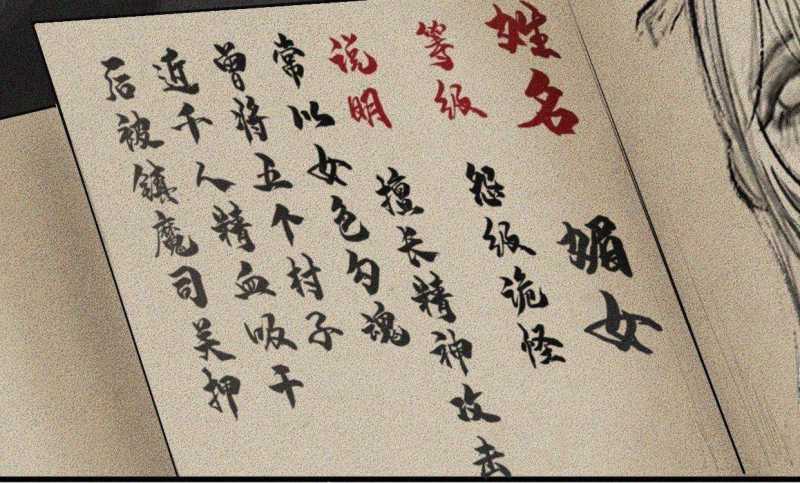 姓名 媚女
等级 怨级诡怪
说明 擅长精神攻击
常以女色勾魂
曾将五个村子
近千人精血吸干
后被镇魔司关押